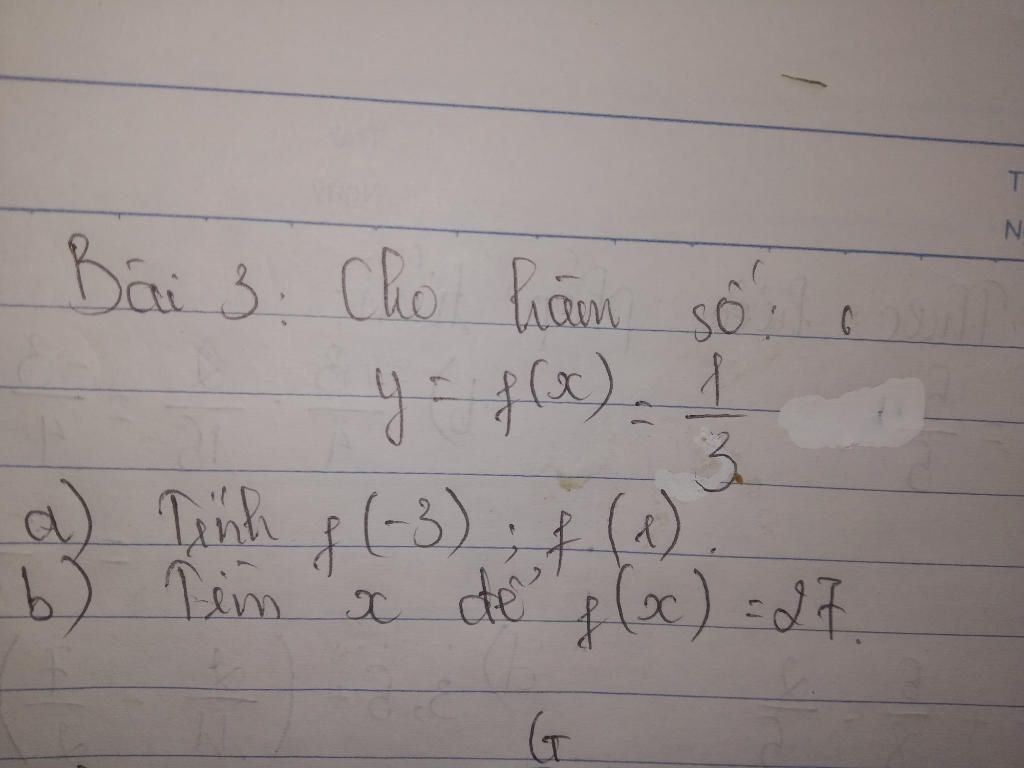 Bài 3: Cho hàm số:
y = f(x) = 1/3
a) Tính f(-3); f(1).
b) Tìm x để f(x) = 27.
G